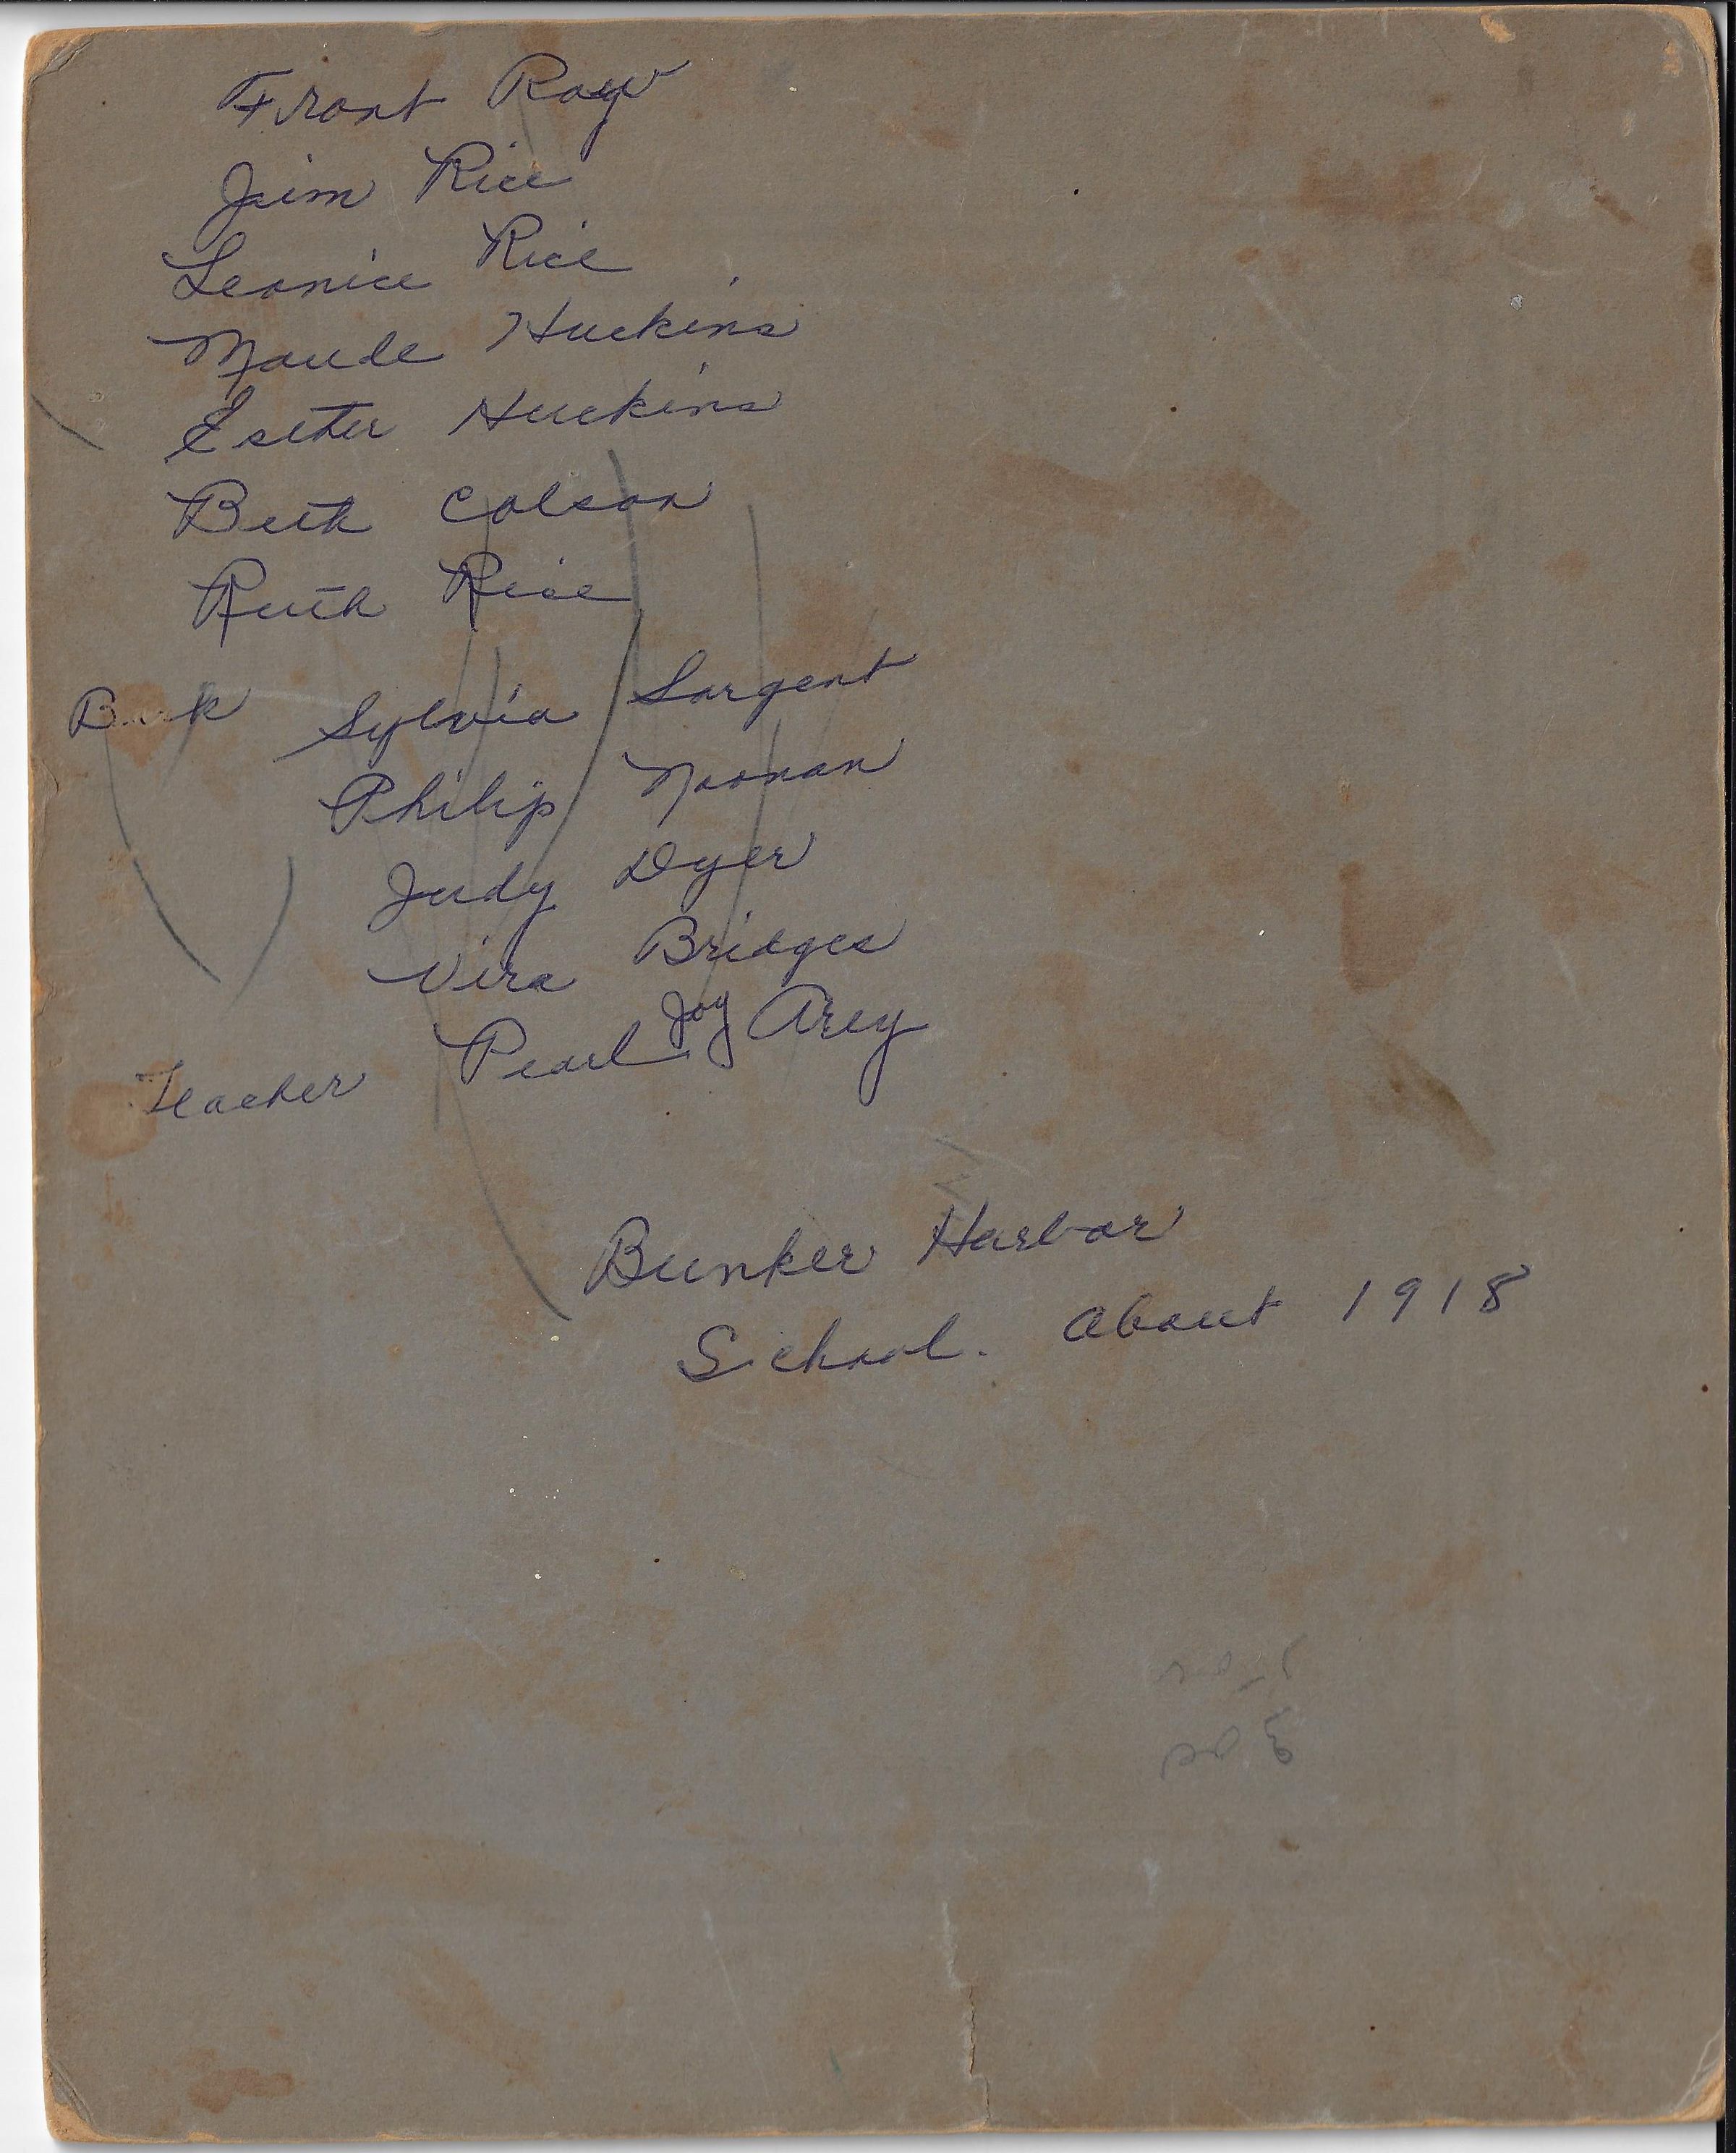 Front Row
Jim Rice
Leonice Rice
Maude Huckins
Esther Huckins
Beth Colson
Ruth Rice
Back Sylvia Sargent
Philip Noonan
Judy Dyer
Vira Bridges
Teacher Pearl Joy Arey
Bunker Harbor
School. About 1918